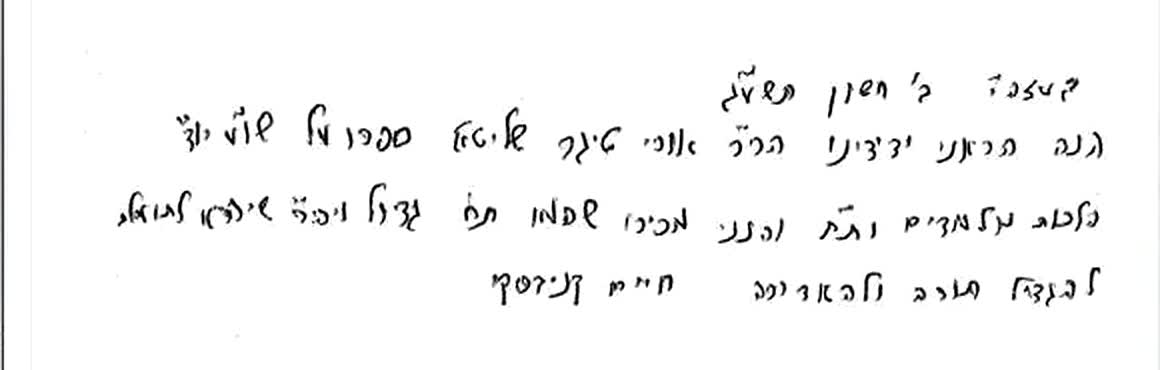 בעזהי״ ב' חשון תשע״ג
הנה הראני ידידינו הר״ר אורי טיגר שליט״א ספרו על שו״ע יו״ד
הלכות מלמדים ות״ת והנני מכירו שהוא ת״ח גדול ויה״ר שיהא לתועלת
להגדיל תורה ולהאדירה חיים קניבסקי